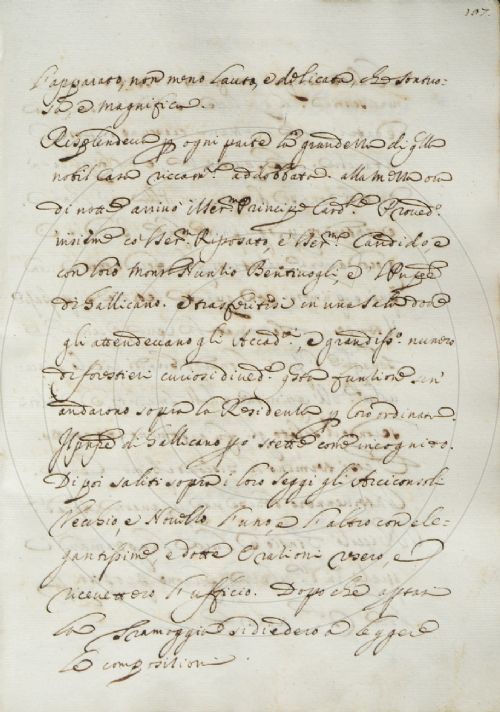 107.
l'apparato, non meno lauto, e delicato, che sontuo-
so e magnifico.
Risplendeva p ogni parte la grandezza di qlla
nobil Casa riccam.te addobbata. alla mezza ora
di notte arrivò il Ser.mo Principe Card.le Proved.re
insieme co'l Ser.mo Riposato, e Ser.mo Candido e
con loro Mons.r Nunzio Bentivogli, e
di Gallicano. e trasferitisi in una Sala dove
gli attendevano gli Accad.ci, e grandiss.o numero
di forestieri curiosi di ved.e qsta funzione sen'
andarono sopra la Residenza p loro ordinata.
Il di Gallicano però stette come incognito.
Di poi saliti sopra i loro seggi gli Arciconsoli
Vecchio, e Novello l'uno, e l'altro con ele-
gantissime, e dotte Orazioni resero, e
ricevettero l'uffizio. Dopo che aperta
la Tramoggia si diedero a leggere
le composizioni.